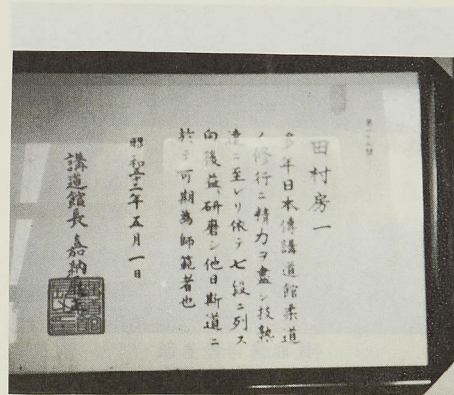 田村房一
多年日本傳講道館柔道
ノ修行ニ精力ヲ盡シ技熟
達ニ至レリ依テ七段ニ列ス
向後益研磨シ他日斯道ニ
於テ可期為師範者也
昭和五十三年五月一日
講道館長 嘉納